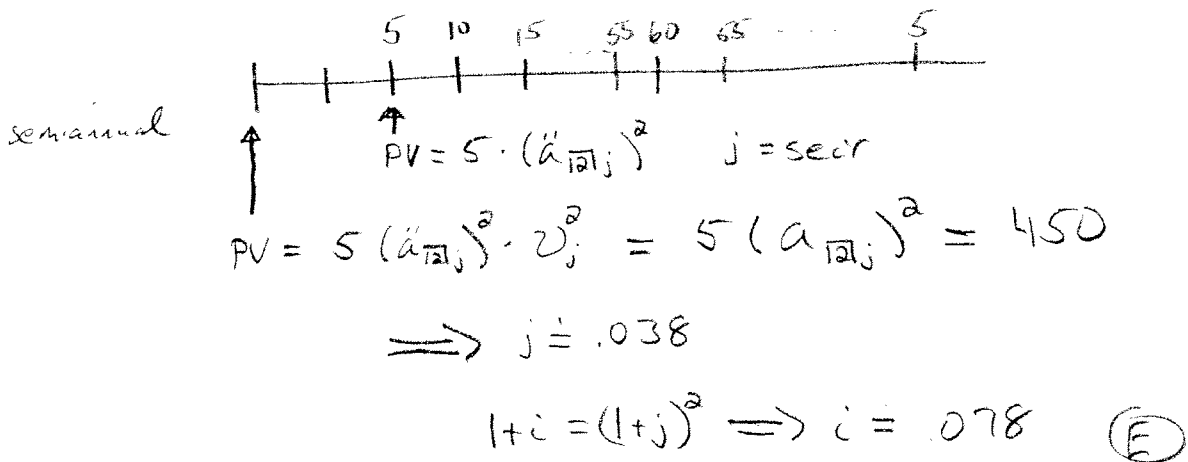 5 10 15 ... 55 60 65 .... 5
semiannual
PV = 5 · (ä_{12|j})² j = seir
PV = 5 (ä_{12|j})² · v_j² = 5 (a_{12|j})² = 450
⟹ j ≐ .038
1+i = (1+j)² ⟹ i = .078 Ⓔ